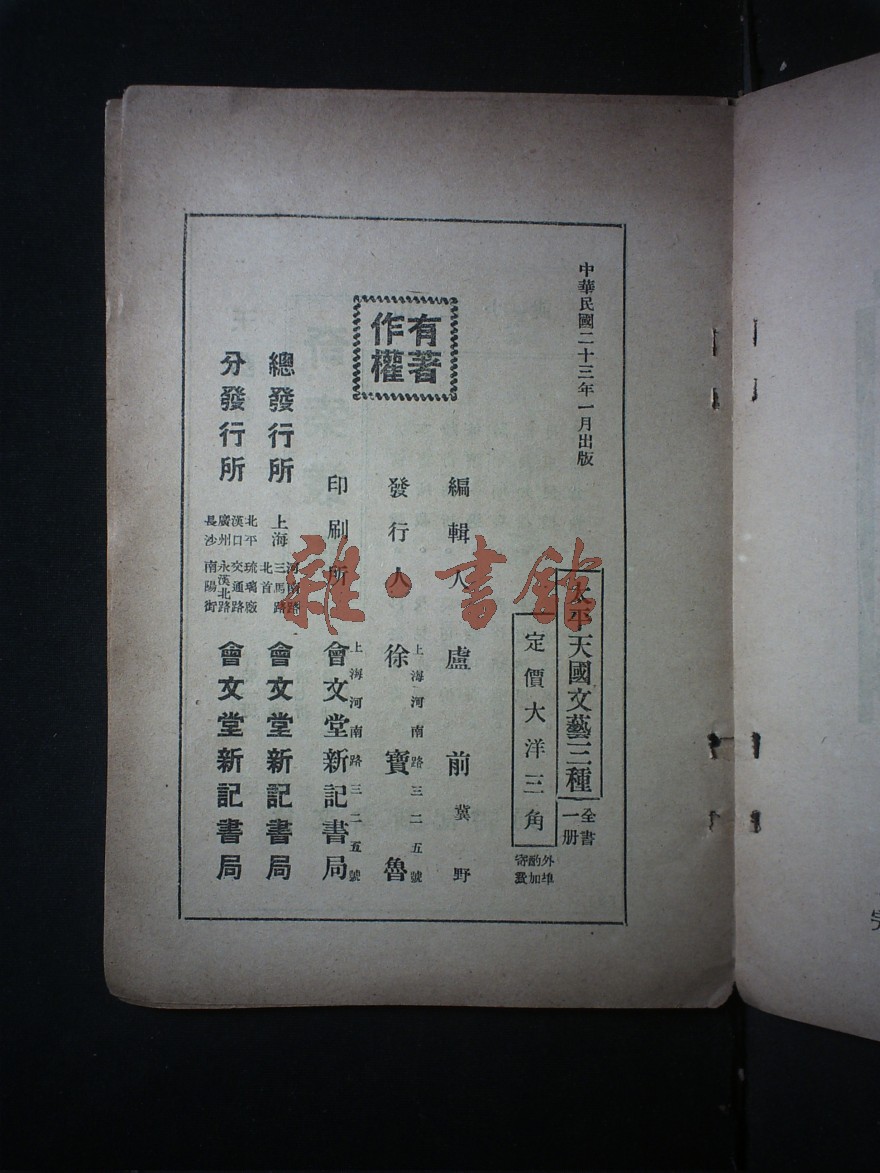 中華民國二十三年一月出版
太平天國文藝三種
全書一册
定價大洋三角
外埠酌加寄費
有著作權
編輯人 盧前 冀野
發行人 徐寶魯
上海河南路三二五號
印刷所 會文堂新記書局
上海河南路三二五號
總發行所 上海 河南路三馬路北首 會文堂新記書局
分發行所 北平 琉璃廠 漢口 交通路 廣州 永漢北路 長沙 南陽街 會文堂新記書局
雜·書館